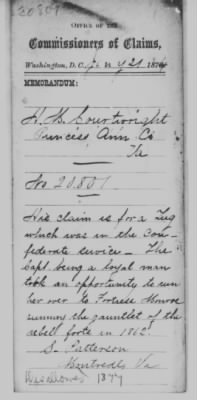 20801
OFFICE OF THE
Commissioners of Claims,
Washington, D. C., 21, 187
MEMORANDUM:
H. B. Courtwright
Princess Ann Co
Va
No 20.801
His claim is for a Tug
which was in the Con-
federate service - The
Capt. being a loyal man
took an opportunity to run
her over to Fortress Monroe
running the gauntlet of the
rebell forts in 1862
S. Patterson
Va
Disallowed 1877